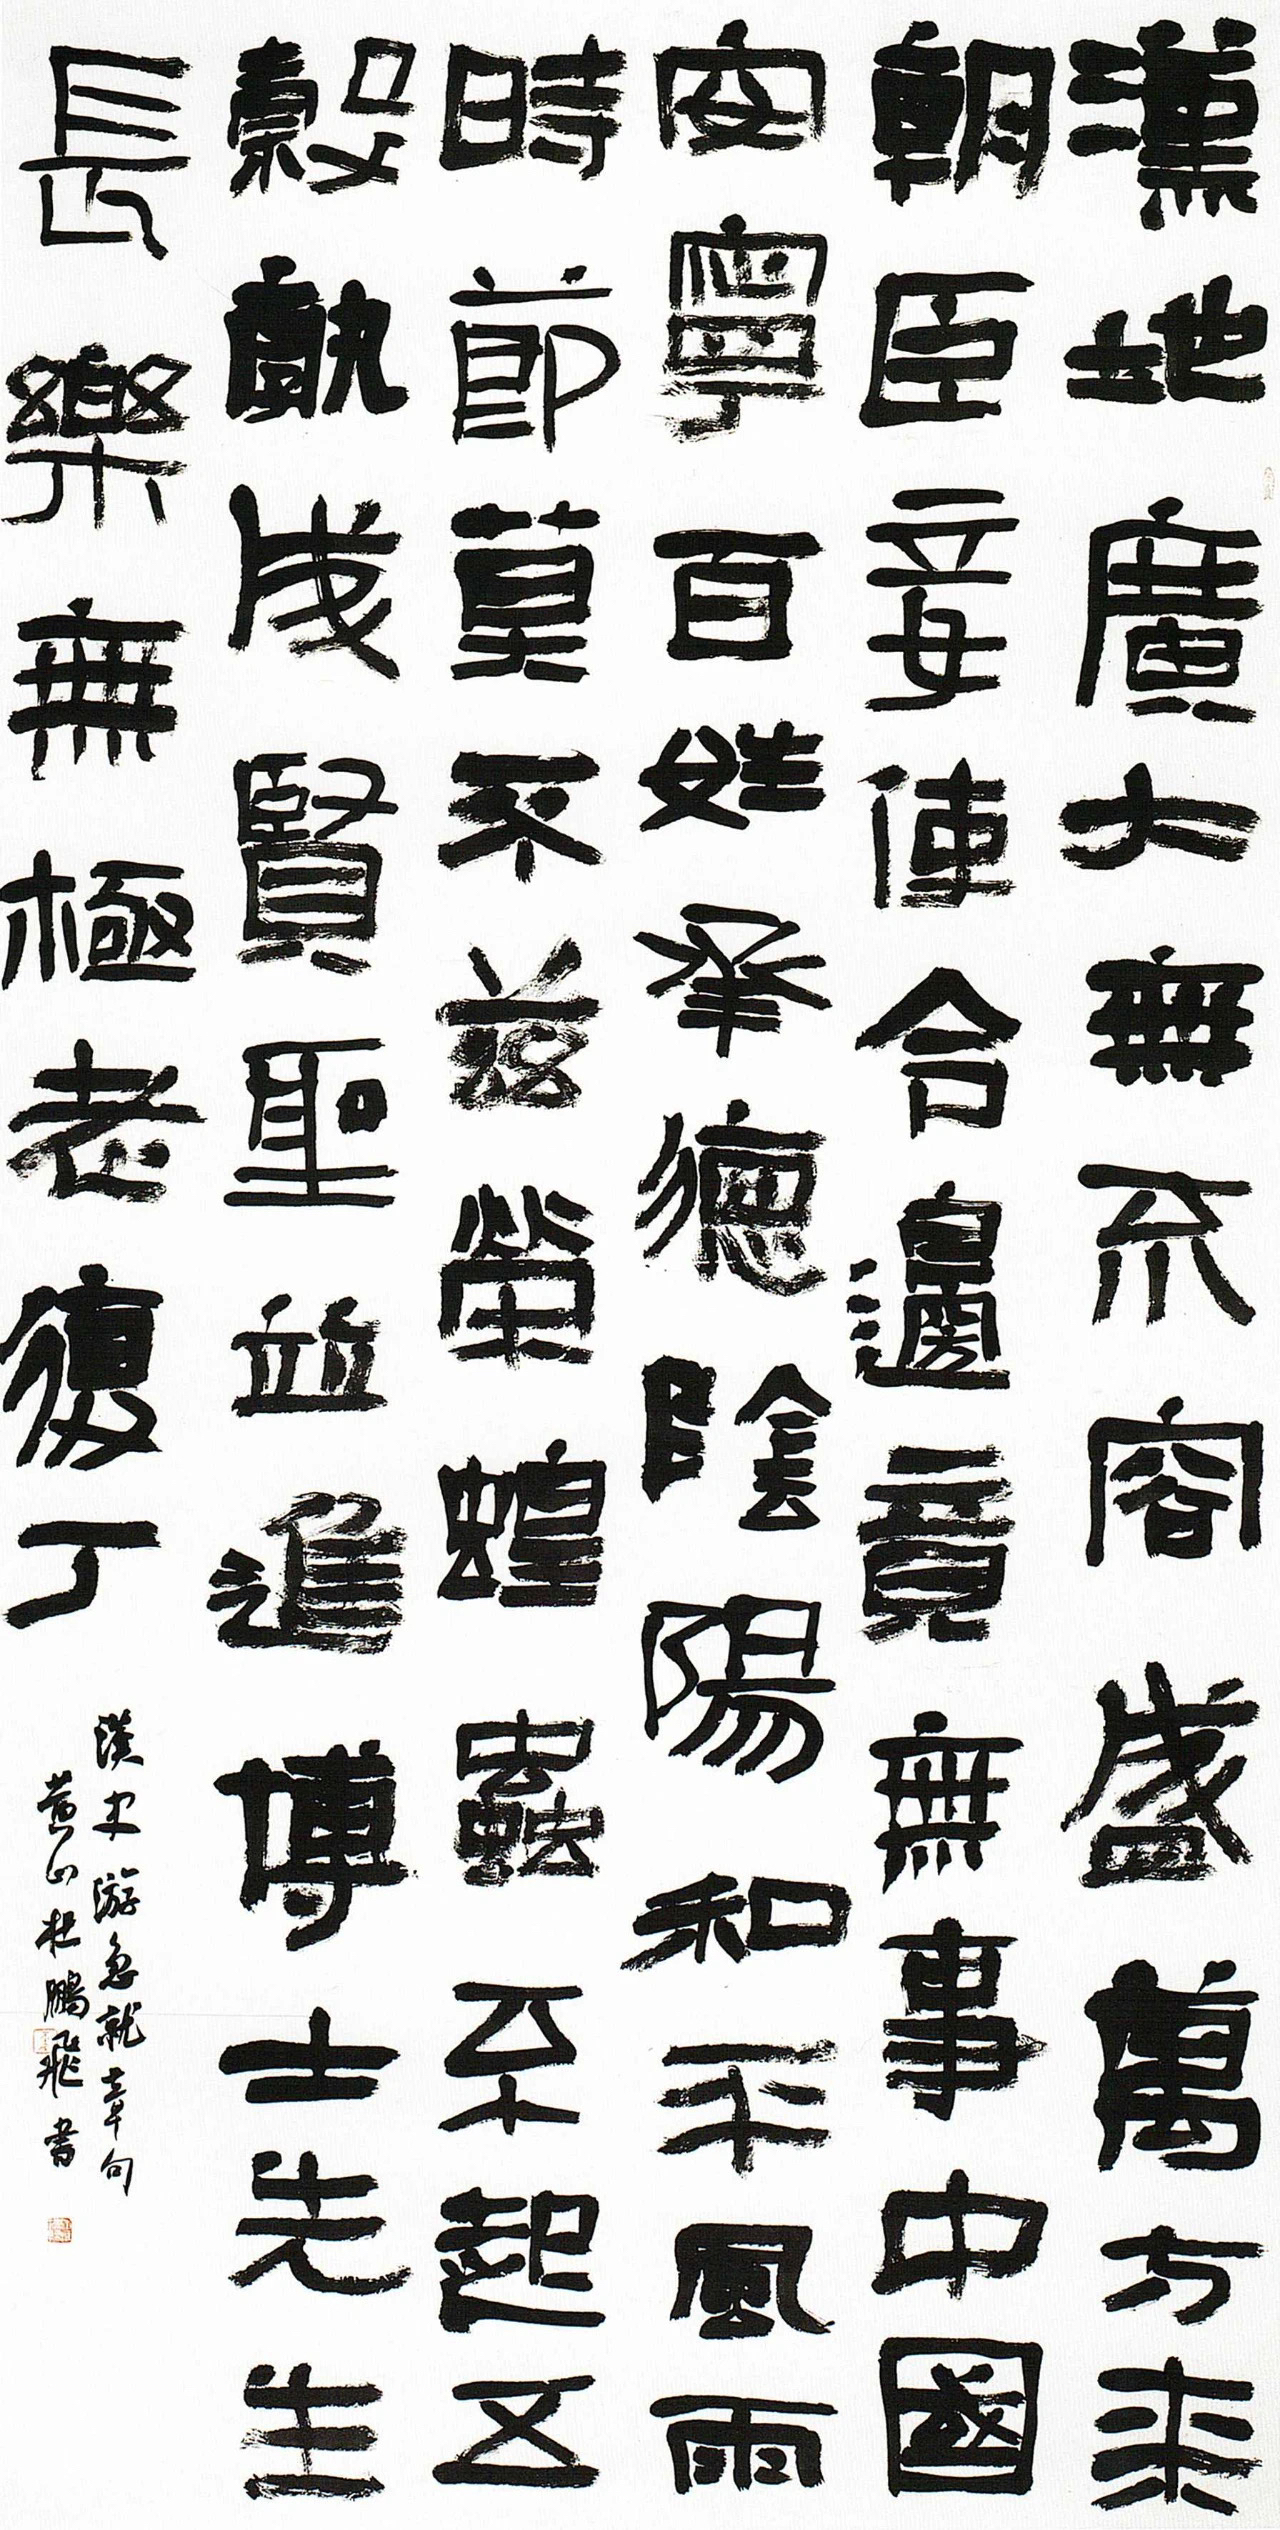 漢地廣大無不容盛萬方來
朝臣妾使合邊竟無事中國
安寧百姓承德陰陽和平風雨
時節莫不茲榮蝗蟲不起五
穀孰成賢聖並進博士先生
長樂無極老復丁
漢史游急就章句
黃山杜鵬飛書